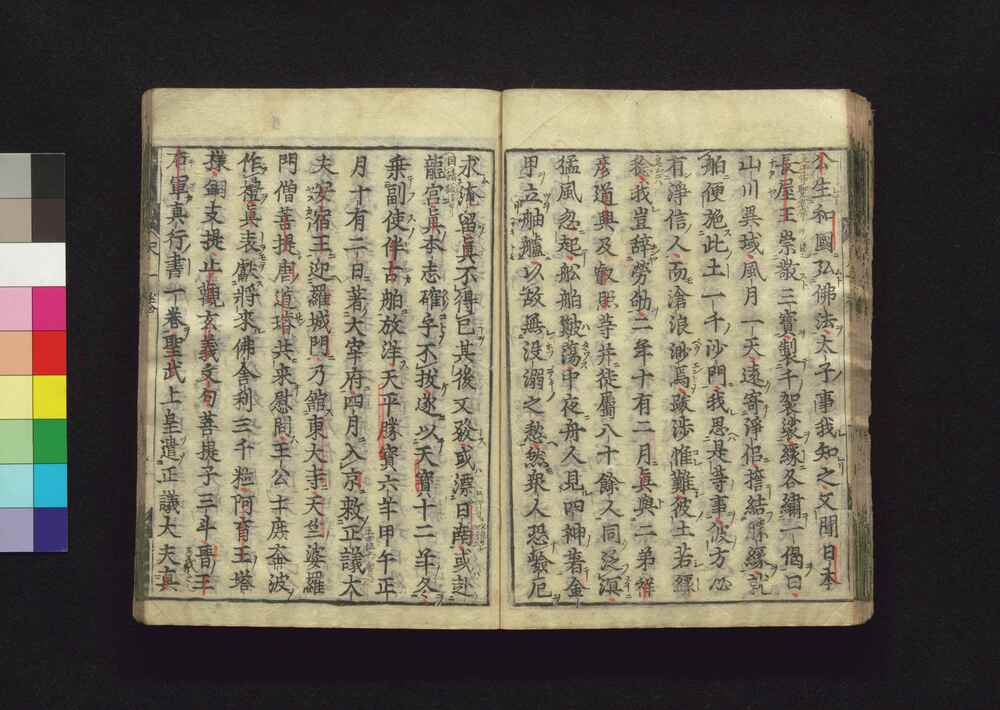 公生和國弘佛法太子事我知之又聞日本
長屋王崇敬三寶製千袈裟縁各繡一偈曰
山川異域風月一天遠寄淨侶擔結勝縁訖
舶便施此土一千沙門我思是等事彼方必
有淨信人而滄浪渺焉跋渉惟難彼土若緣
稔我豈辭勞劬二年十有二月真與二弟祥
彦道興及叡照等幷徒屬八十餘人同泛溟
猛風忽起舩舶艱蕩中夜舟人見四神著金
甲立舳艫以故無没溺之愁然衆人恐驚厄
求淹留真不得已其後又發或漂日南或赴
龍宮真本志確乎不拔遂以天寶十二年冬
乗副使伴古舶放洋天平勝寶六年甲午正
月十有二日著大宰府四月入京敕正議大
夫安宿王迎羅城門乃舘東大寺天竺婆羅
門僧菩提唐道璿共来慰問王公士庶奔波
作禮真表獻將來佛舎利三千粒阿育王塔
様銅支提止觀玄義文句菩提子三斗晋王
右軍真行書一卷聖武上皇遣正議大夫真